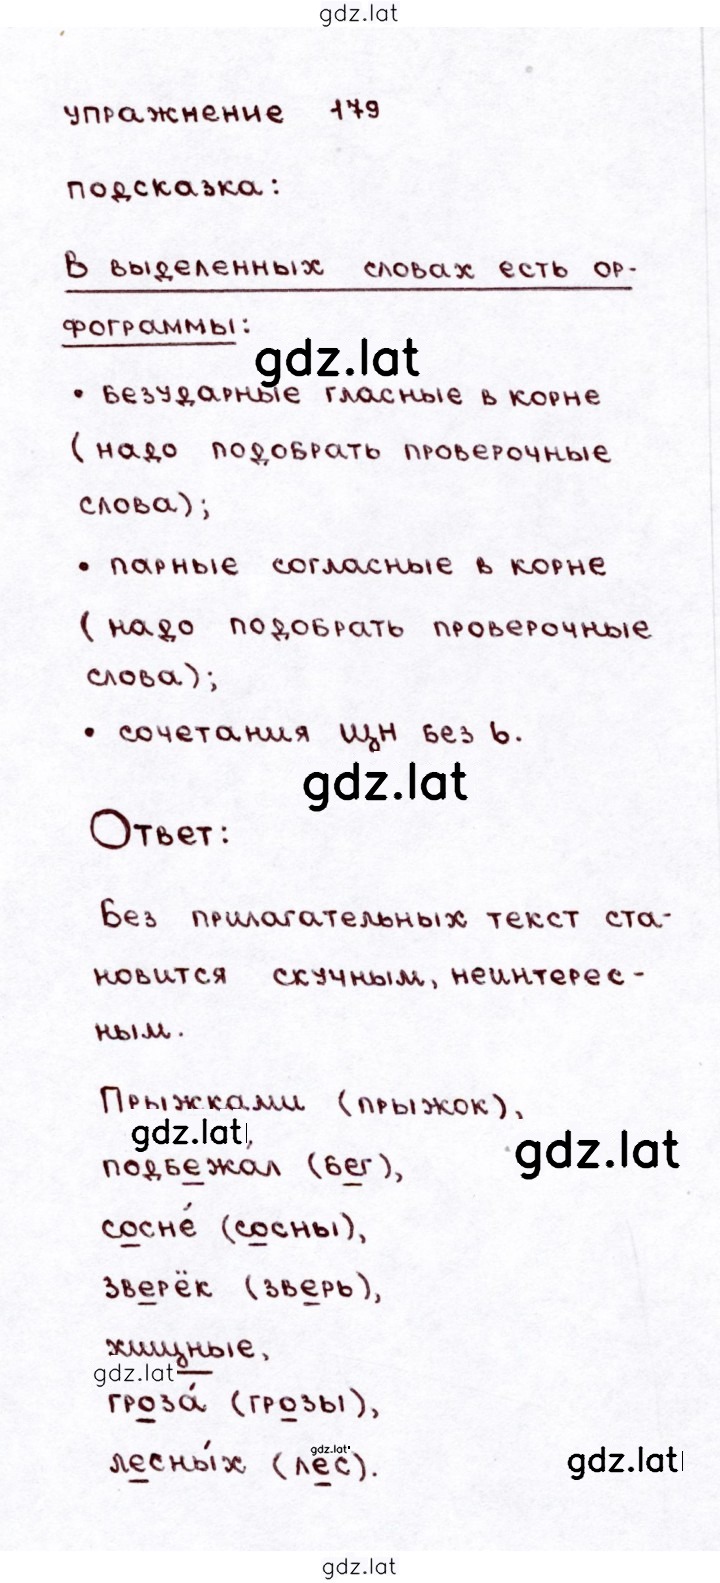 gdz.lat
упражнение 179
подсказка:
В выделенных словах есть ор-
фограммы:
gdz.lat
• безударные гласные в корне
(надо подобрать проверочные
слова);
• парные согласные в корне
(надо подобрать проверочные
слова);
• сочетания щн без ь.
gdz.lat
Ответ:
Без прилагательных текст ста-
новится скучным, неинтерес-
ным.
Прыжками (прыжок),
gdz.lat
gdz.lat
подбежал (бег),
сосне́ (сосны),
зверёк (зверь),
хищные,
gdz.lat
гроза́ (грозы),
gdz.lat
лесны́х (лес).
gdz.lat
gdz.lat